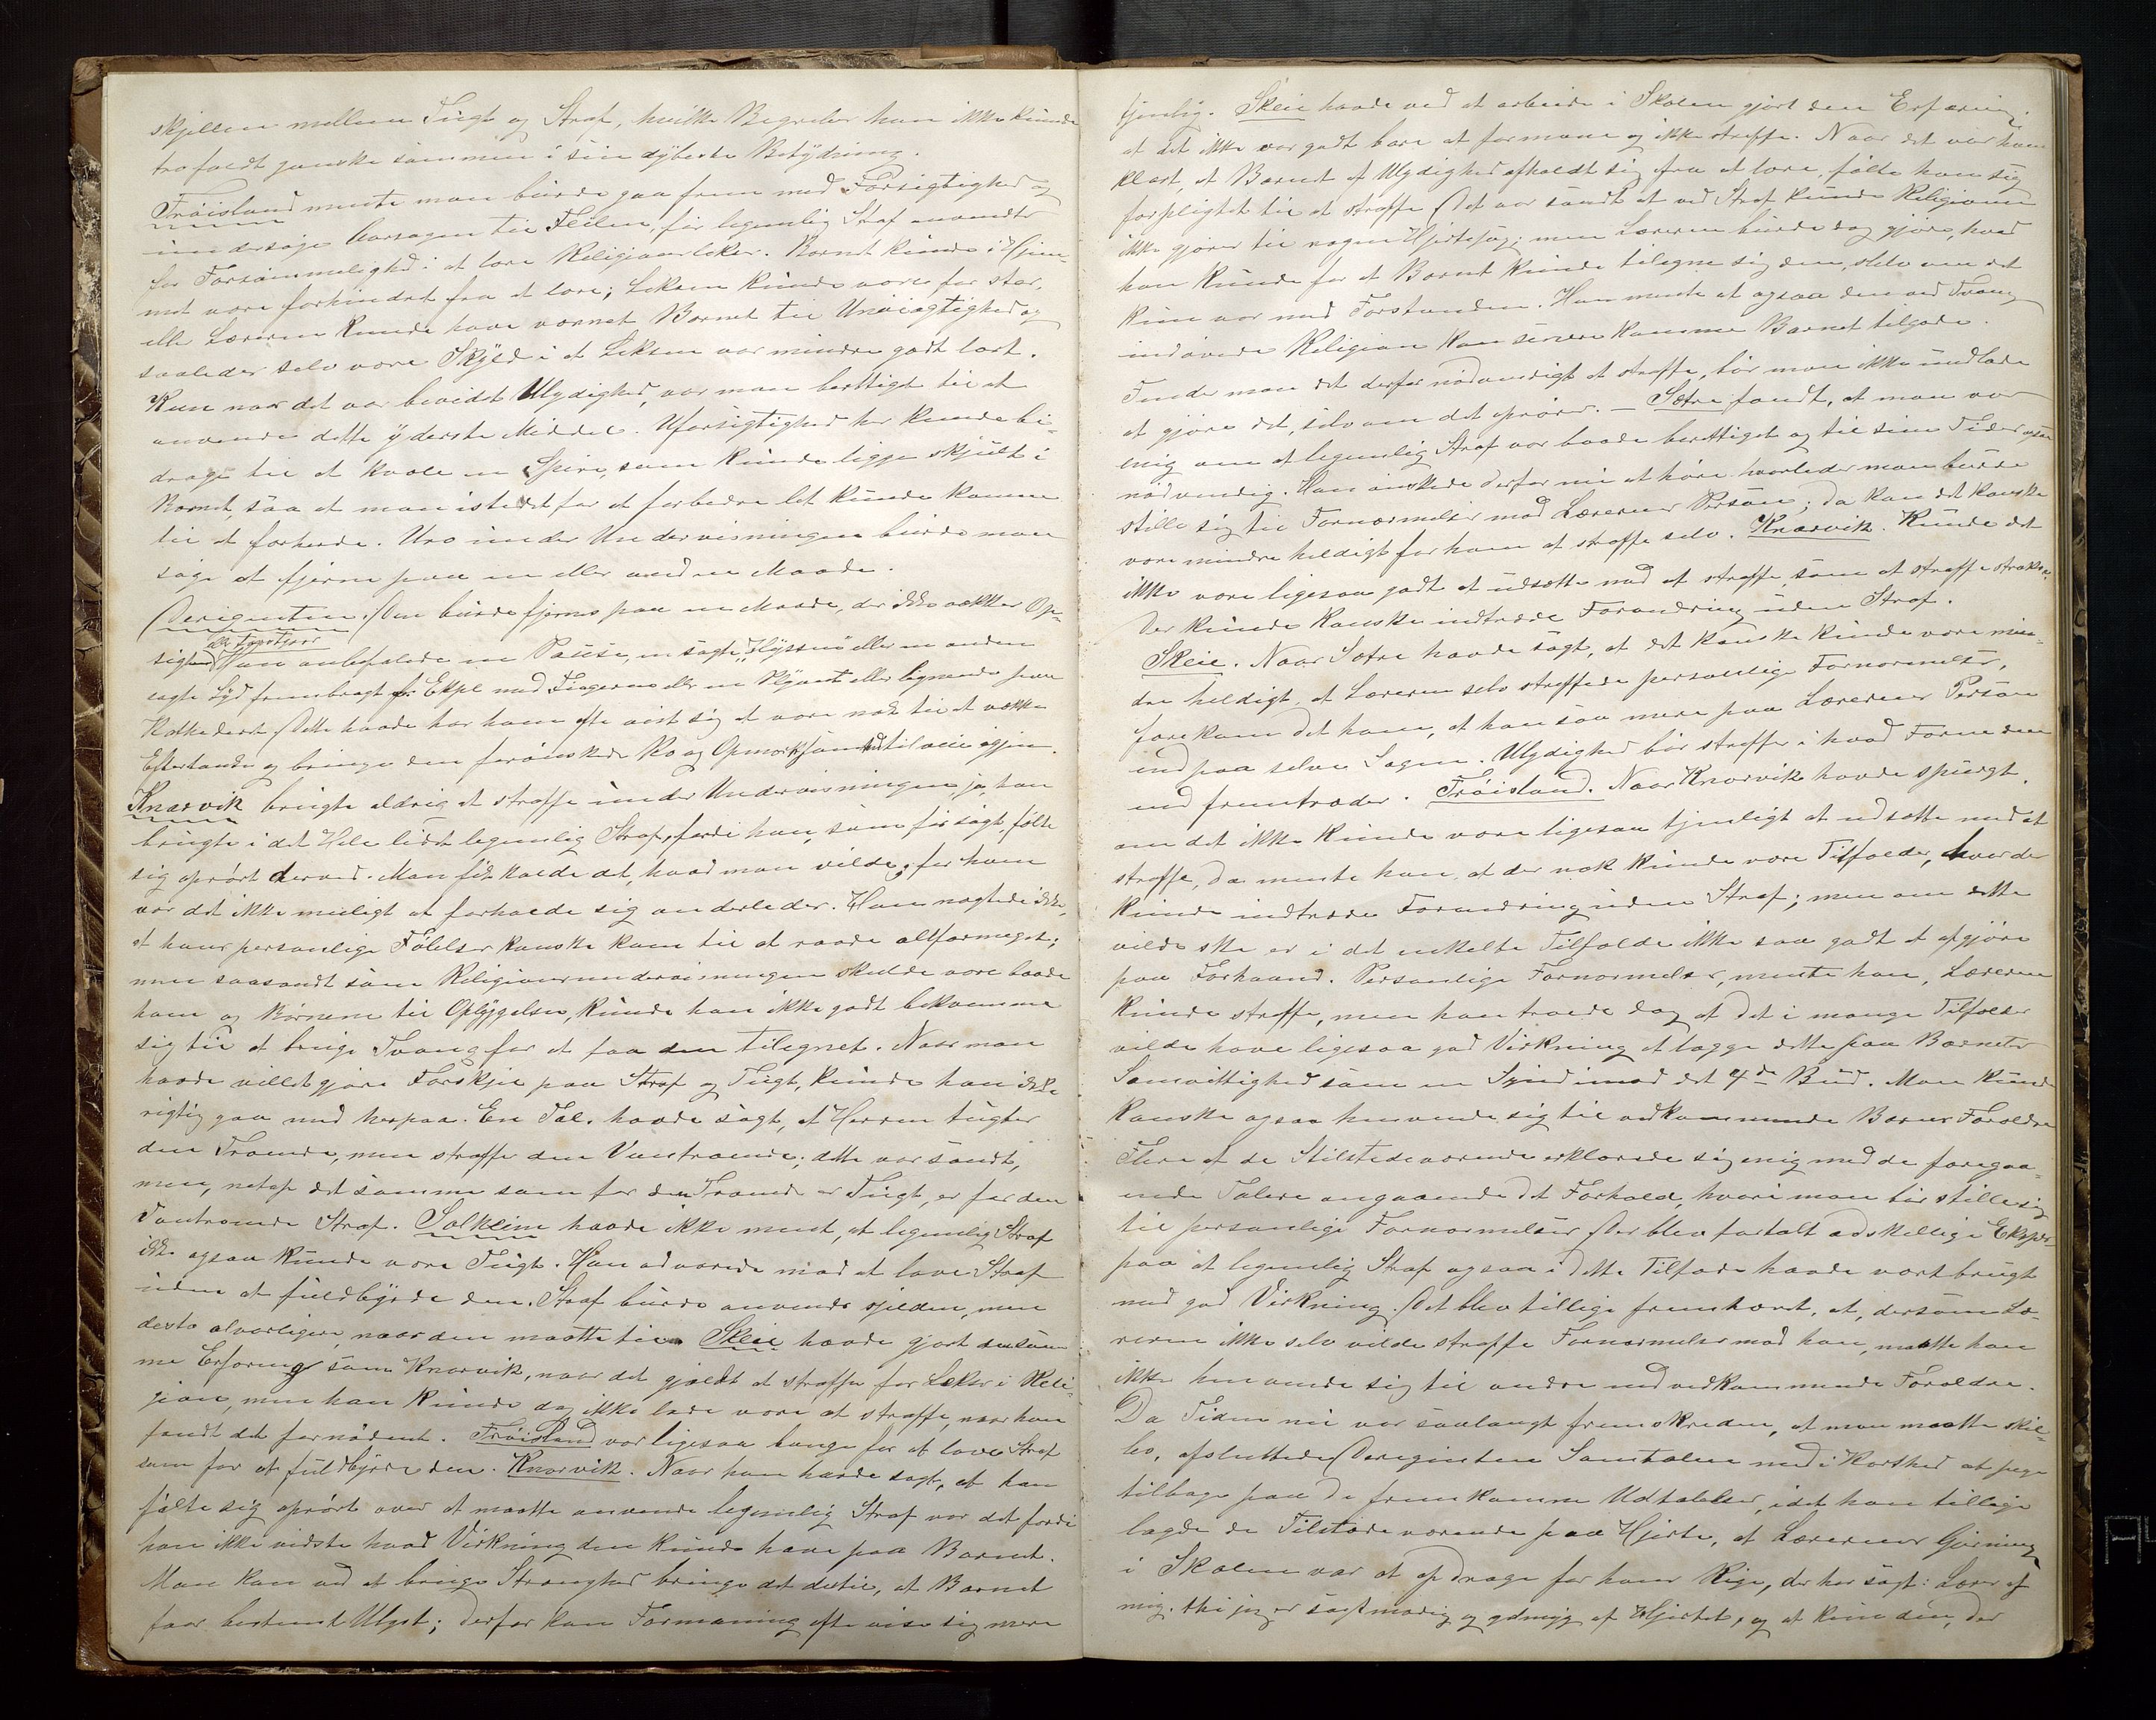 skjellen mellem Tugt og Straf, hvilke Begreber han ikke kunde
traf aldt ganske sammen i sin dybeste Betydning.
Tröisland mente man burde gaa frem med Forsigtighed og
undersøge Aarsagen til Feilen, før legemlig Straf anvendtes
for Forsømmelighed i at lære Religionslekser. Barnet kunde i Hjem-
met være forhindret fra at lære; Leksen kunde være for stor,
eller Læreren kunde have vænnet Barnet til Unøiagtighed og
saaledes selv være Skyld i at Leksen var mindre godt lært.
Kun naar det var bevidst Ulydighed, var man berettiget til at
anvende dette yderste Middel. Uforsigtighed her kunde bi-
drage til at kvæle en Spire, som kunde ligge skjult i
Barnet, saa at man istedetfor at forbedre let kunde komme
til at forherde. Uro under Undervisningen burde man
søge at fjerne paa en eller anden Maade.
Derigenten: Den burde fjernes paa en Maade, der ikke vækker Op-
sigt Han anbefalede en Pause, en sagte "Hyssen" eller en anden
sagte Lyd frembragt f. Ekpl med Fingerene eller en Blyant eller lignende paa
Kathederet. Dette havde har ham ofte vist sig at være nok til at vække
Eftertanke og bringe den forønskede Ro og Opmærksomhed tilveie igjen.
Knarvik brugte aldrig at straffe under Undervisningen ja, han
brugte i det Hele lidet legemlig Straf, fordi han, som før sagt, følte
sig oprørt derved. Man fik kalde det, hvad man vilde; for ham
var det ikke muligt at forholde sig anderledes. Han nægtede ikke,
at hans personlige Følelser kanske kom til at raade altformeget;
men saasandt som Religionsundervisningen skulde være baade
ham og Børnene til Opbyggelse, kunde han ikke godt bekvemme
sig til at bruge Tvang for at faa den tilegnet. Naar man
havde villet gjøre Forskjel paa Straf og Tugt, kunde han ikke
rigtig gaa med herpaa. En Tal. havde sagt, at Herren tugter
den Troende, men straffer den Vantroende; dette var sandt,
men, netop det samme som for den Troende er Tugt, er for den
Vantroende Straf. Solheim havde ikke ment, at legemlig Straf
ikke ogsaa kunde være Tugt. Han advarede mod at love Straf
uden at fuldbyrde den. Straf burde anvendes sjelden, men
desto alvorligere, naar den maatte til. Skeie havde gjort den sam-
me Erfaring som Knarvik, naar det gjældt at straffe for Lekser i Reli-
gion, men han kunde dog ikke lade være at straffe, naar han
fandt det fornødent. Tröisland var ligesaa bange for at love Straf
som for at fuldbyrde den. Knarvik. Naar han havde sagt, at han
følte sig oprørt over at maatte anvende legemlig Straf var det fordi
han ikke vidste hvad Virkning den kunde have paa Barnet.
Man kan ved at bruge Strenghed bringe det dertil, at Barnet
faar bestemt Ulyst; derfor kan Formaning ofte vise sig mere
tjenlig. Skeie havde ved at arbeide i Skolen gjort den Erfaring,
at det ikke var godt bare at formane og ikke straffe. Naar det var ham
klart, at Barnet af Ulydighed afholdt sig fra at lære, følte han sig
forpligtet til at straffe Det var sandt at ved Straf kunde Religionen
ikke gjøres til nogen Hjertesag; men Læreren burde dog gjøre, hvad
han kunde for at Barnet kunde tilegne sig den, selv om det
kun var med Forstanden. Han mente at ogsaa den ved Tvang
indøvede Religion kan senere komme Barnet tilgode.
Finder man det derfor nødvendigt at straffe, bør man ikke undlade
at gjøre det, selv om det oprører. — Sætre fandt, at man var
enig om at legemlig Straf var baade berettiget og til sine Tider ogsaa
nødvendig. Han ønskede derfor nu at høre hvorledes man burde
stille sig til Fornærmelser mod Lærerens Person; da kan det kanske
være mindre heldigt for ham at straffe selv. Knarvik. Kunde det
ikke være ligesaa godt at udsætte med at straffe, som at straffe straks.
Der kunde kanske indtræde Forandring uden Straf.
Skeie. Naar Sætre havde sagt, at det kanske kunde være min-
dre heldigt, at Læreren selv straffede personlige Fornærmelser,
forekom det ham, at han saa mere paa Lærerens Person
end paa selve Sagen. Ulydighed bør straffes i hvad Form den
end fremtræder. Tröisland. Naar Knarvik havde spurgt,
om det ikke kunde være ligesaa tjenligt at udsætte med at
straffe, da mente han, at der nok kunde være Tilfælder, hvor der
kunde indtræde Forandring uden Straf; men om dette
vilde ske er i det enkelte Tilfælde ikke saa godt at afgjøre
paa Forhaand. Personlige Fornærmelser, mente han, Læreren
kunde straffe, men han troede dog at det i mange Tilfælder
vilde have ligesaa god Virkning at lægge dette paa Barnets
Samvittighed som en Synd imod det 4de Bud. Man kunde
kanske ogsaa henvende sig til vedkommende Barns Forældre
Flere af de Tilstedeværende erklærede sig enig med de foregaa-
ende Talere angaaende det Forhold, hvori man bør stille sig
til personlige Fornærmelser Der blev fortalt adskellige Eksper
paa at legemlig Straf ogsaa i dette Tilfælde havde vært brugt
med god Virkning. Det blev tillige fremhævet, at, dersom Læ-
reren ikke selv vilde straffe Fornærmelser mod ham, maatte han
ikke henvende sig til andre end vedkommende Forældre.
Da Tiden nu var saalangt fremskreden, at man maatte skil-
les, afsluttede Deregenten Samtalen med i Korthed at pege
tilbage paa de fremkomne Udtalelser, idet han tillige
lagde de Tilstedeværende paa Hjerte, at Lærerens Gjerning
i Skolen var at opdrage for hans Rige, der har sagt: Lærer af
mig, thi jeg er sagtmodig og ydmyg af Hjertet, og at kun den, der